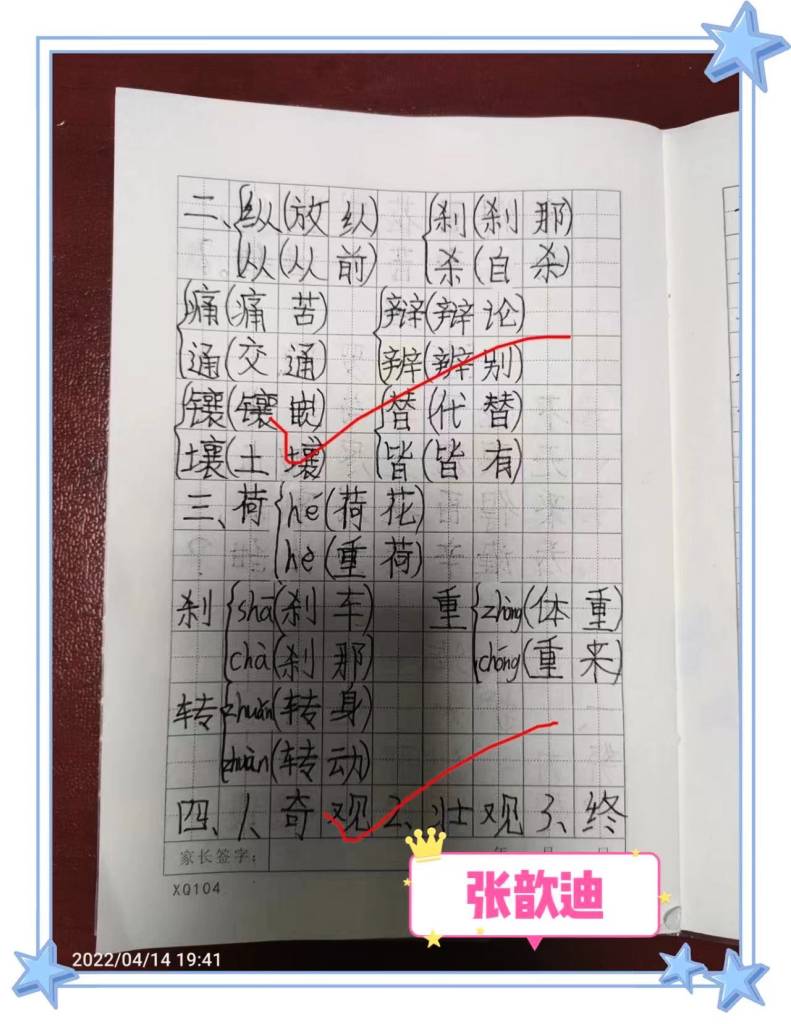 二、纵(放纵) 刹(刹那)
从(从前) 杀(自杀)
痛(痛苦) 辩(辩论)
通(交通) 辨(辨别)
镶(镶嵌) 替(代替)
壤(土壤) 皆(皆有)
三、荷 hé(荷花)
hè(重荷)
刹 shā(刹车) 重 zhòng(体重)
chà(刹那) chóng(重来)
转 zhuǎn(转身)
zhuàn(转动)
四、1、奇观 2、壮观 3、终
家长签字: 年 月 日
XQ104
张歆迪
2022/04/14 19:41